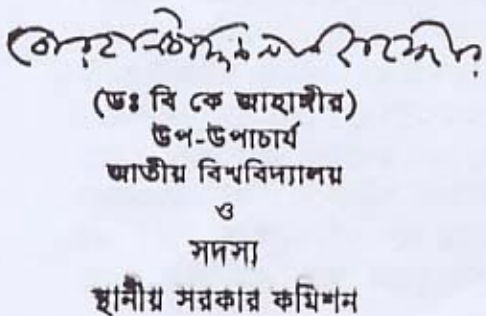 (ডঃ বি কে জাহাঙ্গীর)
উপ-উপাচার্য
জাতীয় বিশ্ববিদ্যালয়
ও
সদস্য
স্থানীয় সরকার কমিশন